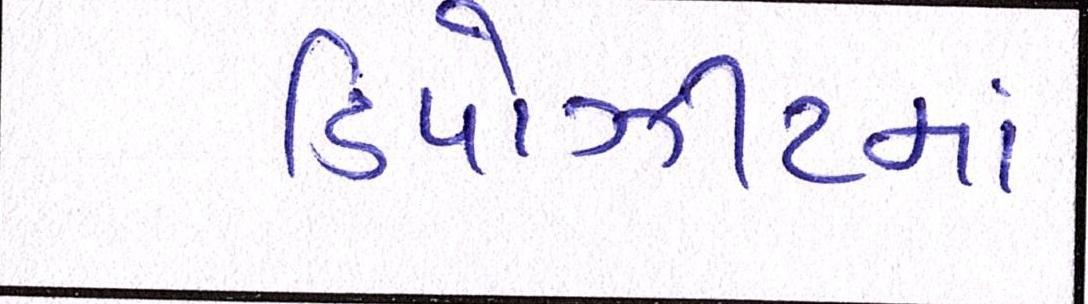 ડિપોઝીટમાં